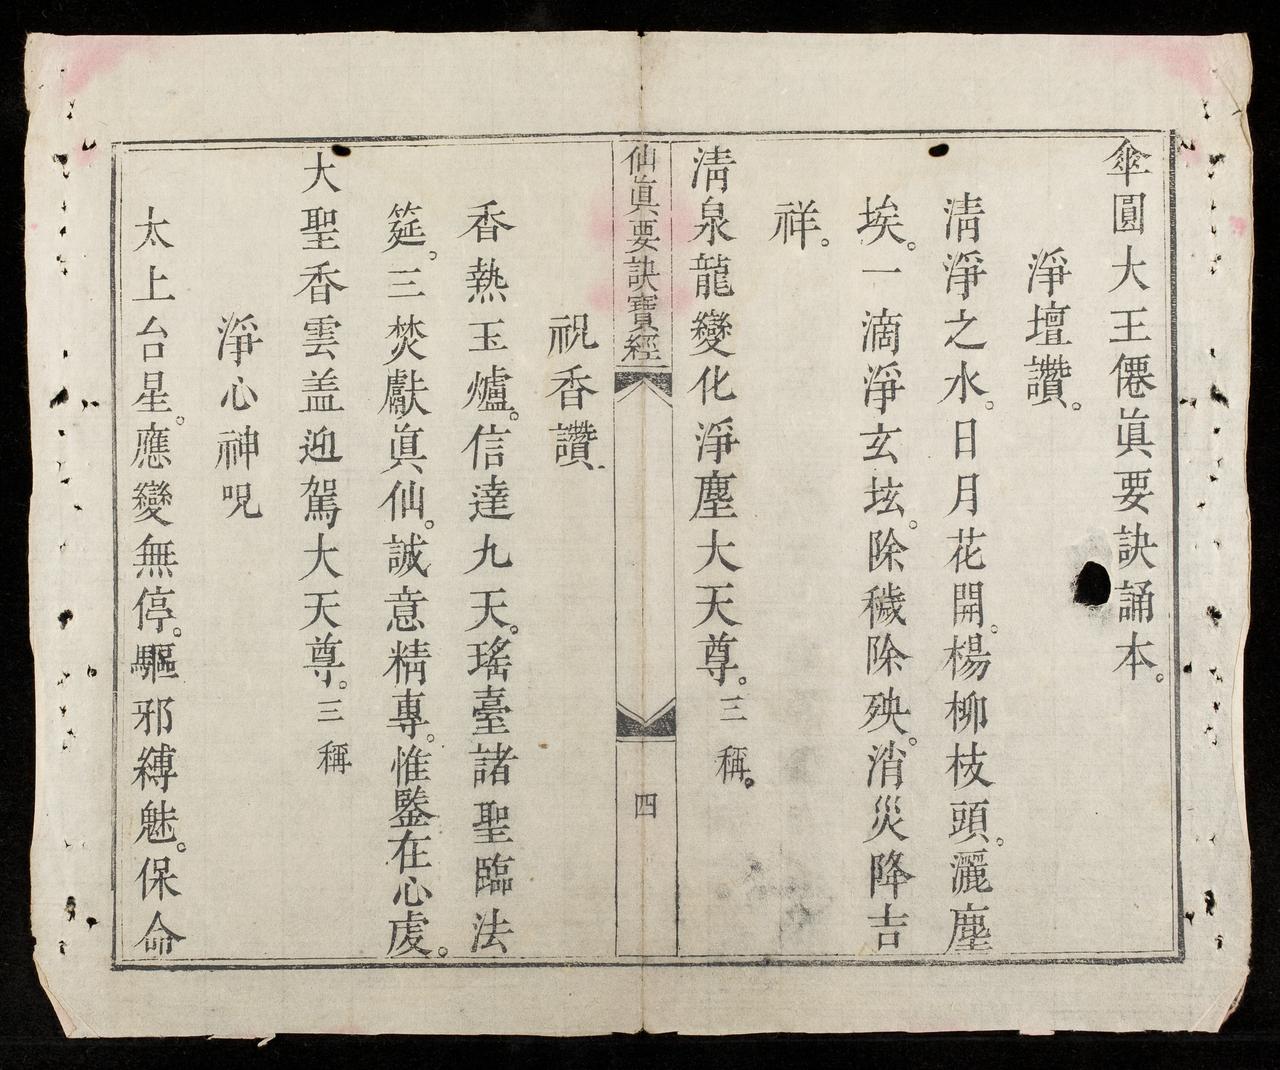 傘圓大王僊眞要訣誦本。
淨壇讚。
淸淨之水。日月花開。楊柳枝頭。灑塵
埃。一滴淨玄坛。除穢除殃。消災降吉
祥。
淸泉龍變化淨塵大天尊。三稱。
仙眞要訣寶經
四
祝香讚。
香熱玉爐。信達九天。瑤臺諸聖臨法
筵。三焚獻眞仙。誠意精專。惟鑒在心虔。
大聖香雲盖迎駕大天尊。三稱
淨心神呪
太上台星。應變無停。驅邪縛魅。保命